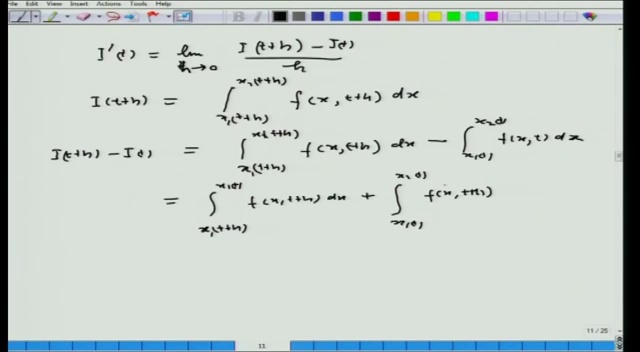 File Edit View Insert Actions Tools Help
I'(t) = lim h→0 (I(t+h) − I(t))/h
I(t+h) = ∫_{x₁(t+h)}^{x₂(t+h)} f(x, t+h) dx
I(t+h) − I(t) = ∫_{x₁(t+h)}^{x₂(t+h)} f(x, t+h) dx − ∫_{x₁(t)}^{x₂(t)} f(x, t) dx
= ∫_{x₁(t+h)}^{x₁(t)} f(x, t+h) dx + ∫_{x₁(t)}^{x₂(t)} f(x, t+h)
11 / 25
11